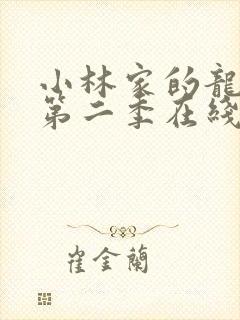 小林家的龍
第二季在綫
崔金蘭